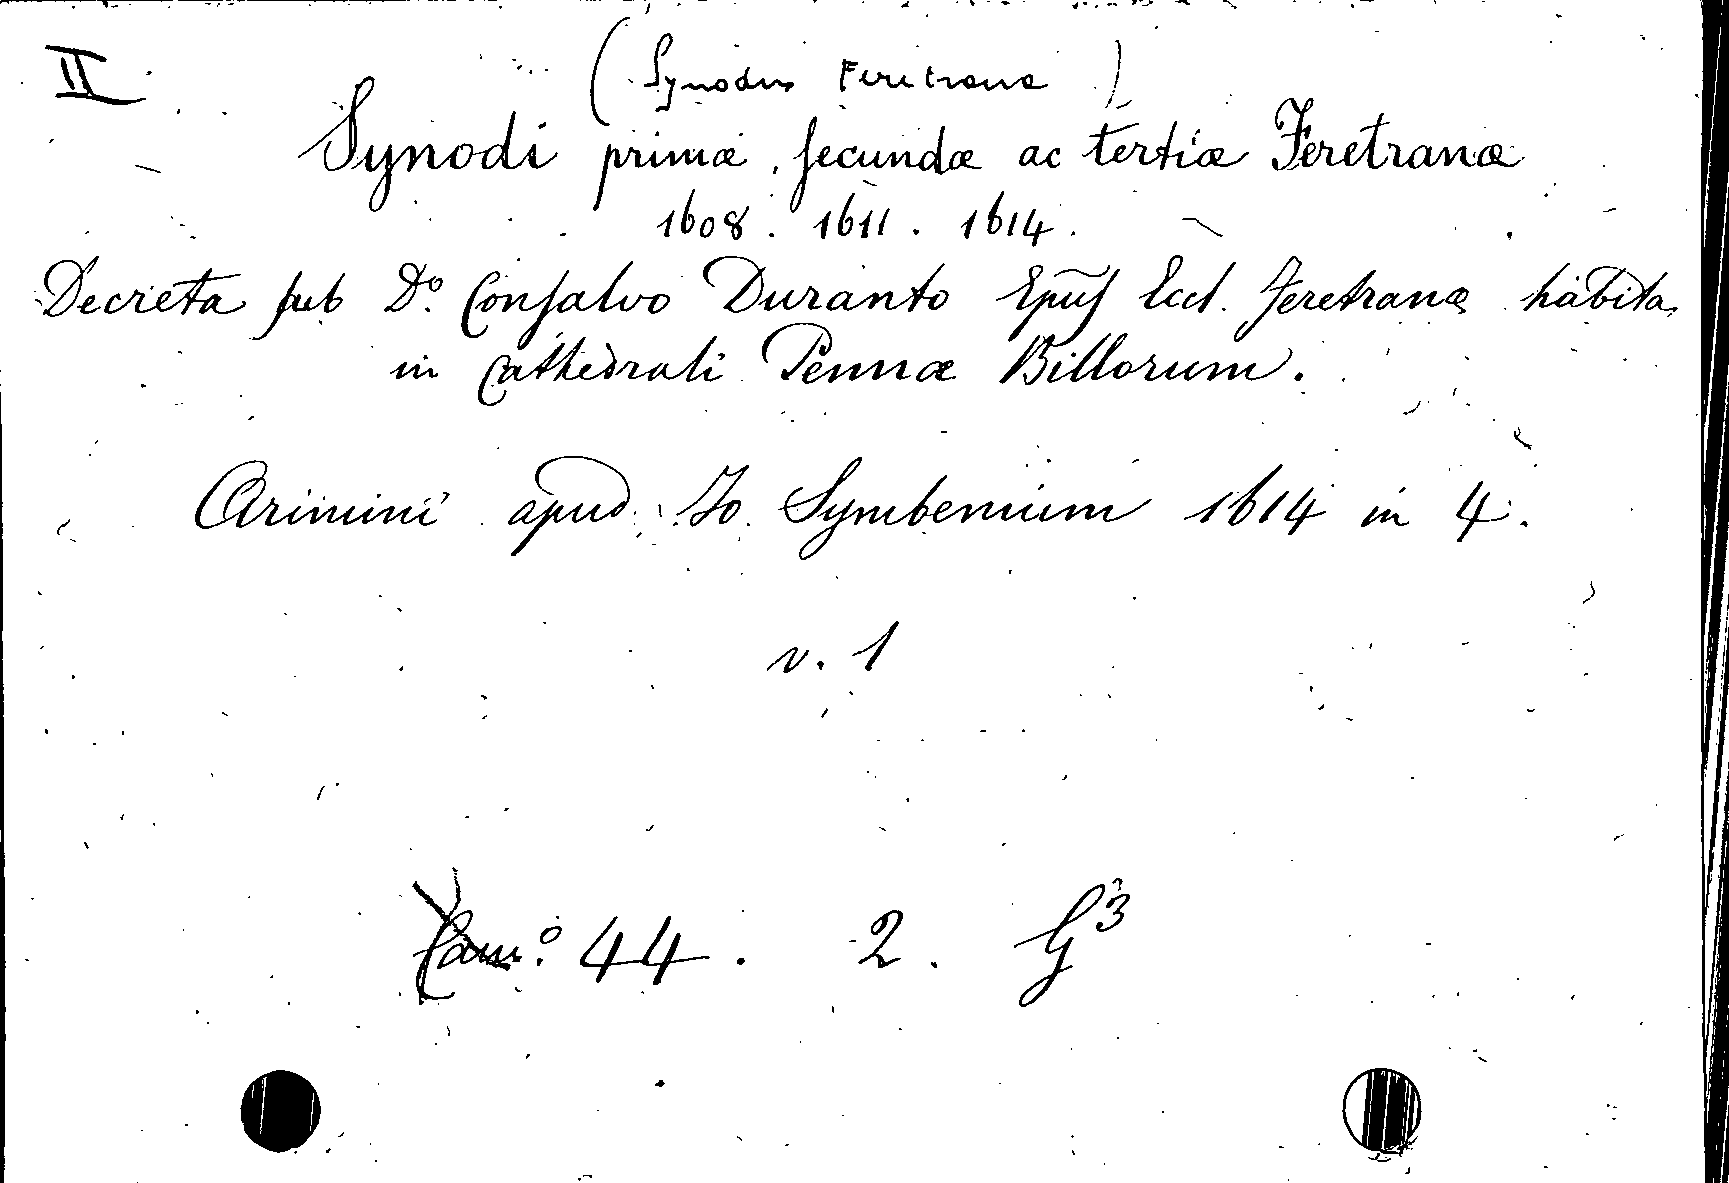 II
(Synodus Feretrana)
Synodi primæ, secundæ ac tertiæ Feretranæ
1608. 1611. 1614.
Decreta sub Dº. Consalvo Duranto Epũs Eccl. Feretranæ habita
in Cathedrali Pennæ Billorum.
Arimini apud Jo. Symbenium 1614 in 4.
v. 1
Camº. 44. 2. G³